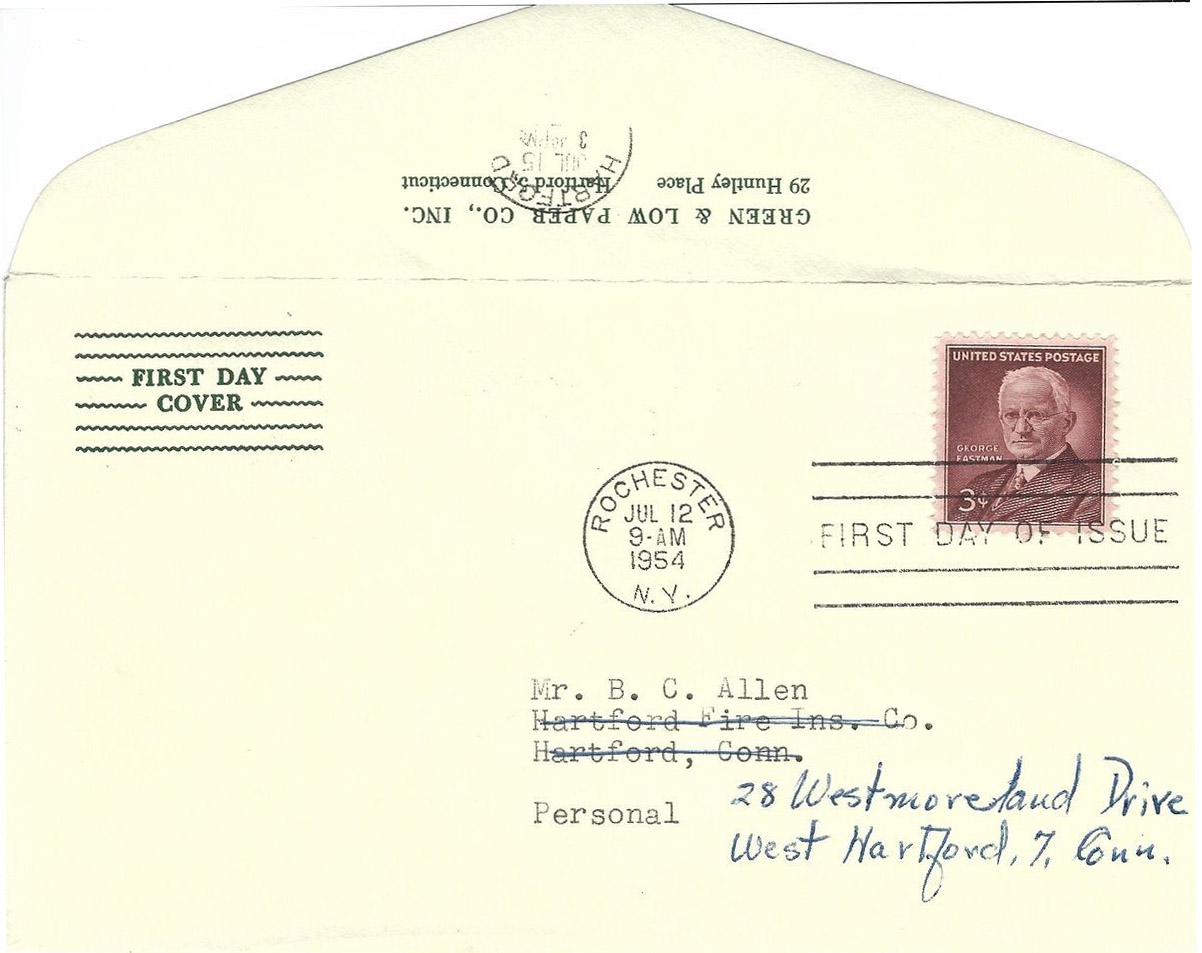 GREEN & LOW PAPER CO., INC.
29 Huntley Place Hartford 5, Connecticut
HARTFORD
JUL 15
3
FIRST DAY
COVER
UNITED STATES POSTAGE
GEORGE
EASTMAN
3¢
ROCHESTER
JUL 12
9-AM
1954
N.Y.
FIRST DAY OF ISSUE
Mr. B. C. Allen
Hartford Fire Ins. Co.
Hartford, Conn.
Personal
28 Westmoreland Drive
West Hartford, 7, Conn.